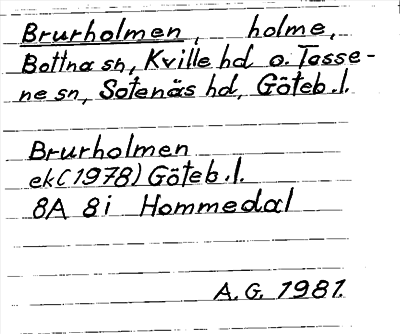 Brurholmen, holme,
Bottna sn, Kville hd o. Tosse-
ne sn, Sotenäs hd, Göteb.l.
Brurholmen
ek(1978) Göteb.l.
8A 8i Hommedal
A.G. 1981.